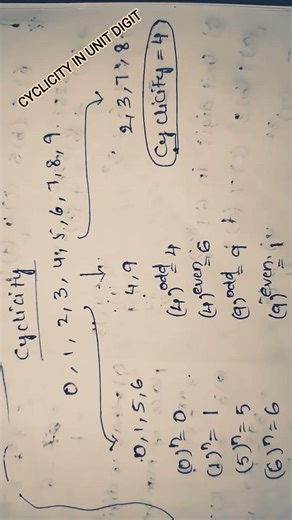 CYCLICITY IN UNIT DIGIT
Cyclicity
0, 1, 2, 3, 4, 5, 6, 7, 8, 9
0, 1, 5, 6
(0)ⁿ = 0
(1)ⁿ = 1
(5)ⁿ = 5
(6)ⁿ = 6
4, 9
(4)^odd = 4
(4)^even = 6
(9)^odd = 9
(9)^even = 1
2, 3, 7, 8
Cyclicity = 4